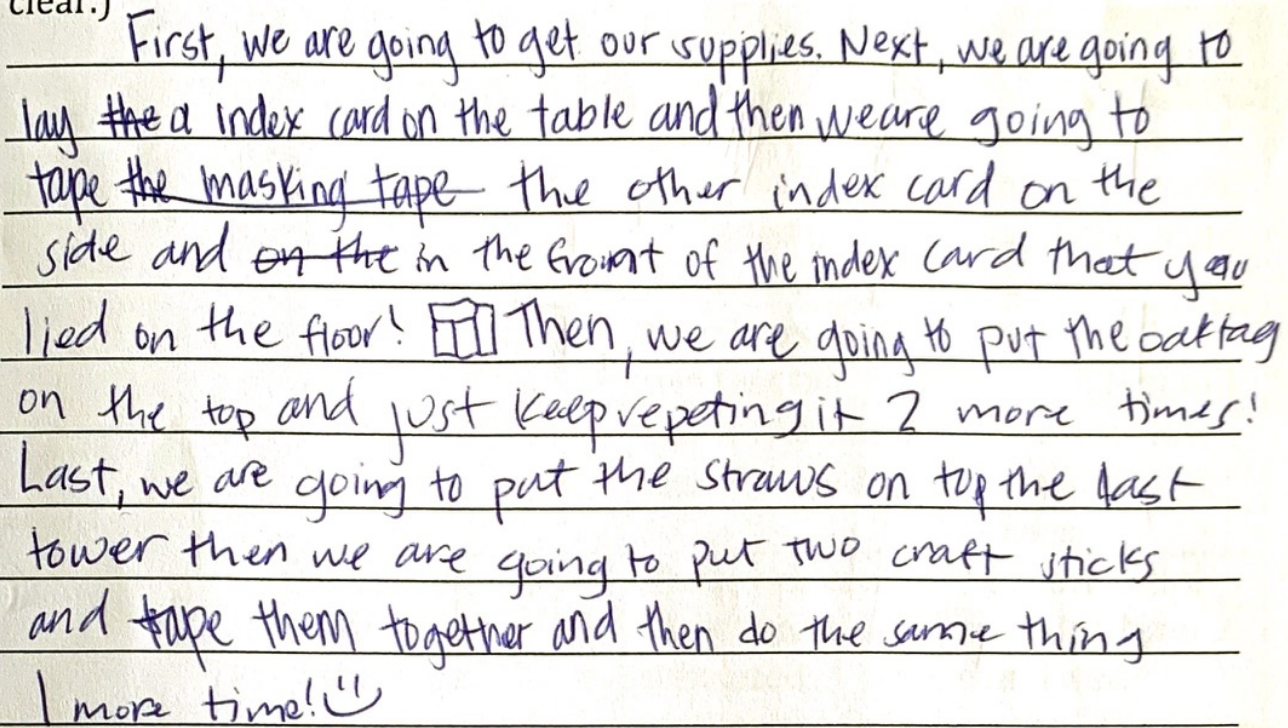 clear.)
First, we are going to get our supplies. Next, we are going to
lay the a index card on the table and then we are going to
tape the masking tape the other index card on the
side and on the in the front of the index card that you
lied on the floor! Then, we are going to put the oaktag
on the top and just keep repeting it 2 more times!
Last, we are going to put the straws on top the last
tower then we are going to put two craft sticks
and tape them together and then do the same thing
1 more time!